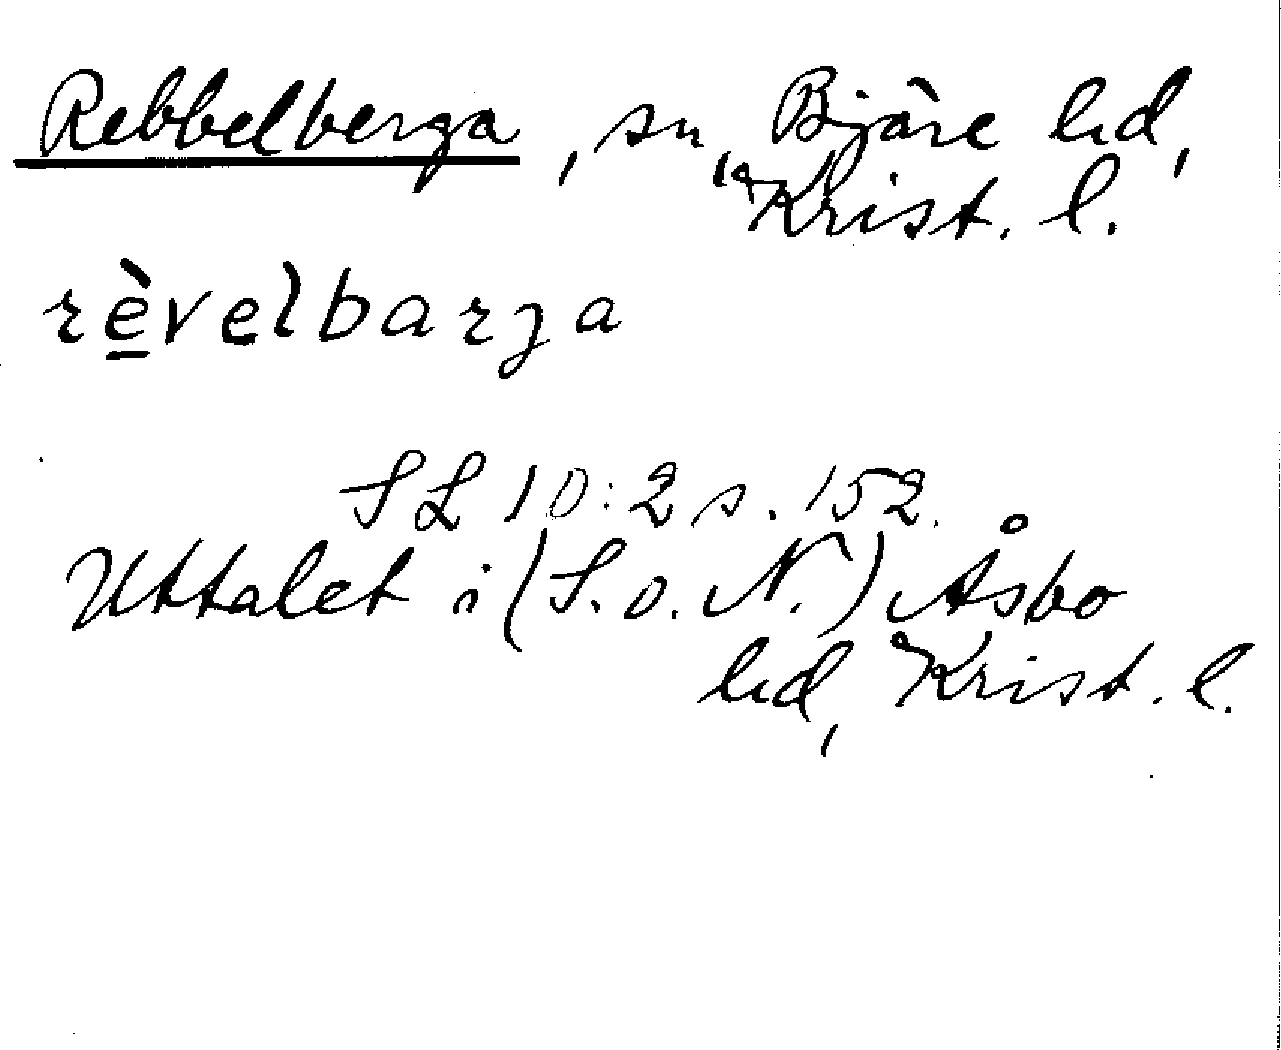 Rebbelberga, sn, Bjäre hd,
Krist. l.
rèvelbarga
SL 10:2 s. 152.
Uttalet i (S. o. N.) Åsbo
hd, Krist. l.